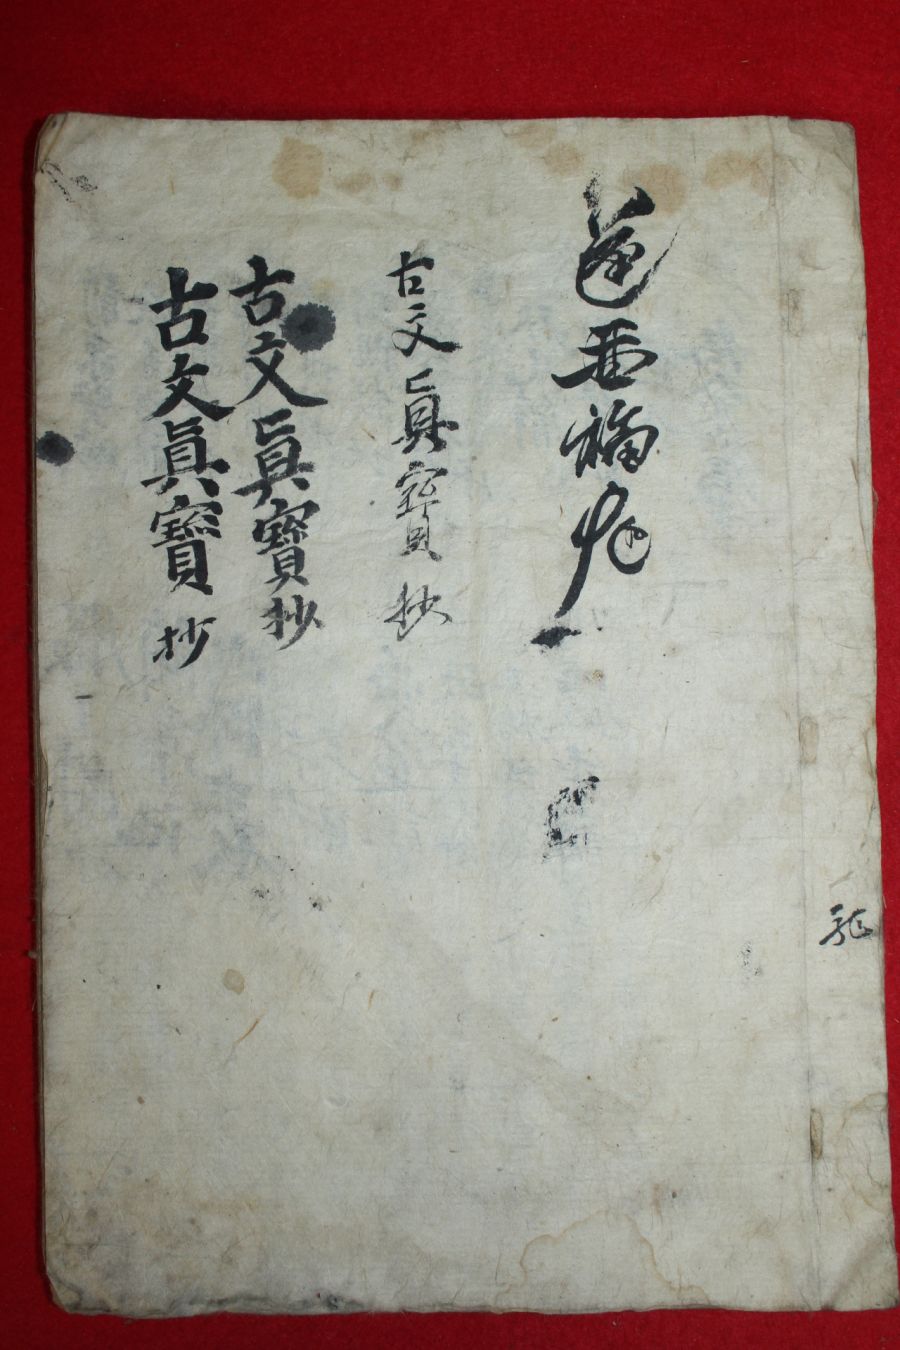 古文眞寶抄
古文眞寶抄
古文眞寶抄